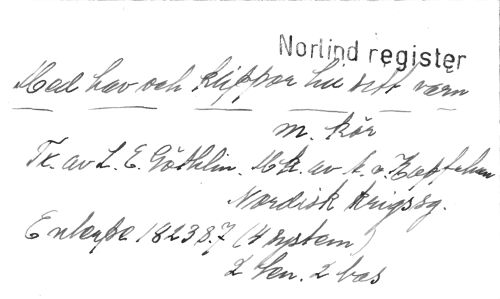 Norlind register
Med hav och klippor till sitt värn
m. kör
Tx. av L. E. Göthlin. Mk. av A. v.
Nordisk krigssg.
Euterpe 1823 8.7 (4 system)
2 ten. 2 bas